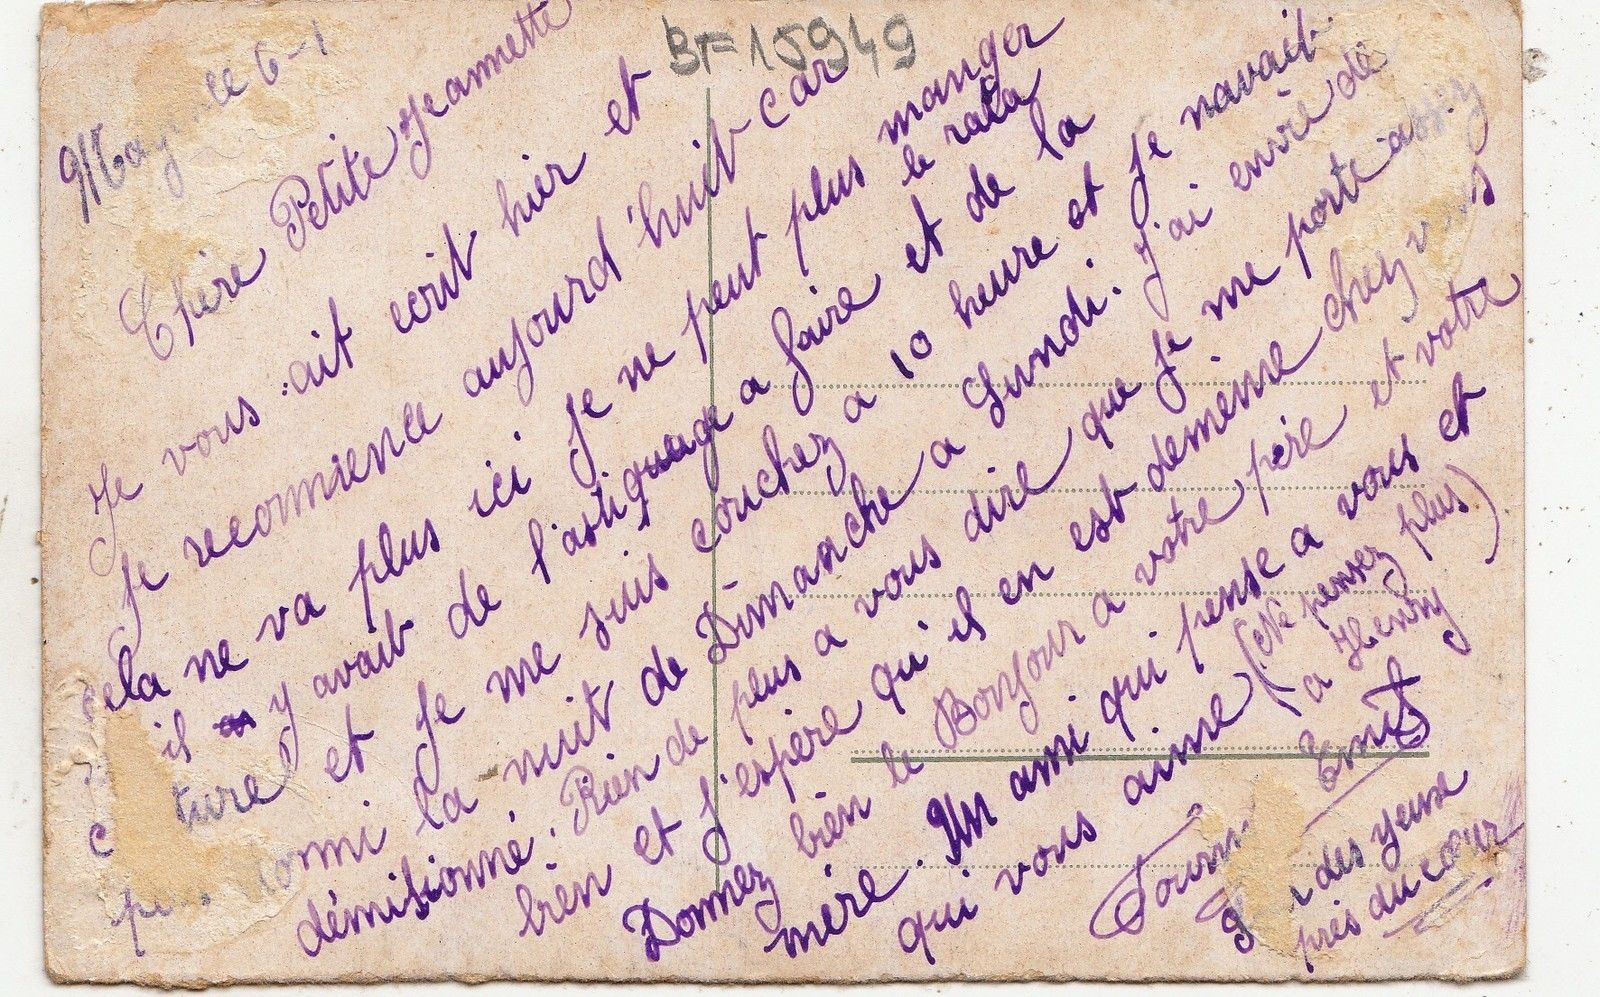 BF 15949
6-1
Chère Petite Jeannette
Je vous ait ecrit hier et
Je recommence aujourd'huit car
cela ne va plus ici Je ne peut plus manger
le rata
il y avait de l'astiquage a faire et de la
ture et Je me suis couchez a 10 heure et Je n'avait
dormi la nuit de Dimanche a Lundi. J'ai envie de
démisionné. Rien de plus a vous dire que Je me porte assy
bien et J'espère qu'il en est dememe chez vous
Donnez bien le Bonjour a votre père et votre
mère. Un ami qui pense a vous et
qui vous aime (Ne pensez plus)
a Henry
des yeux
près du cœur